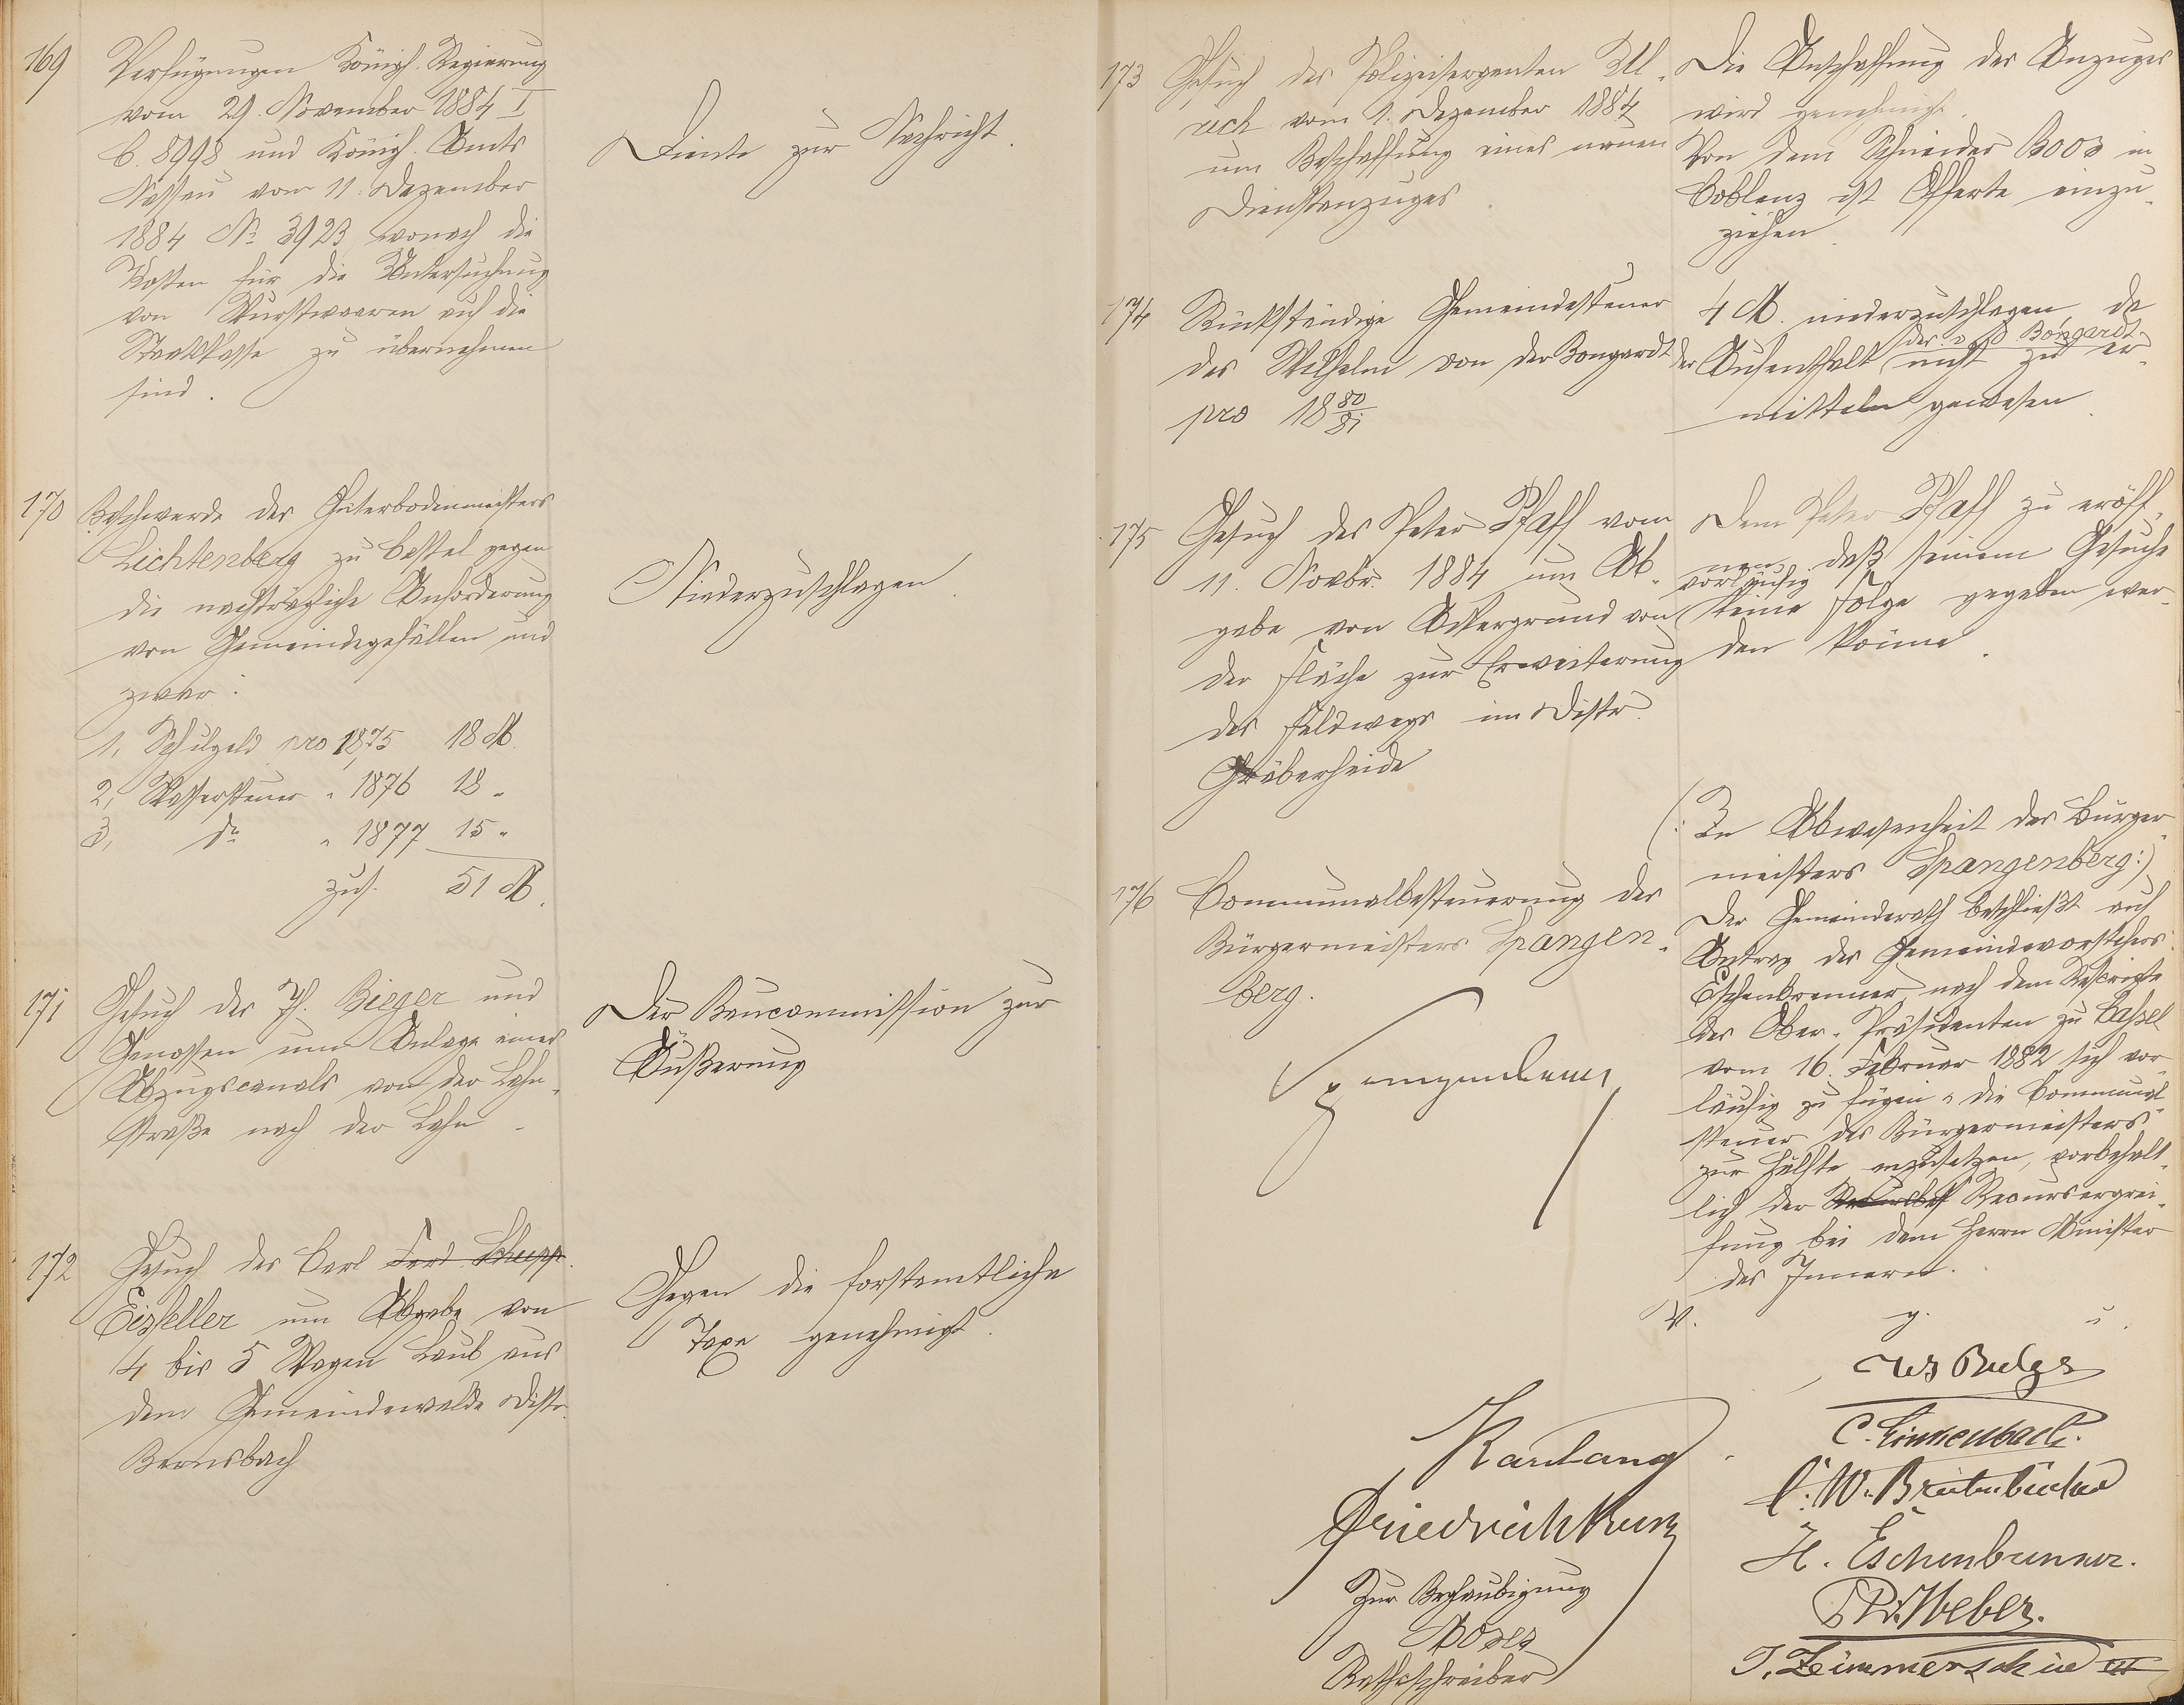 169
Verfügungen Königl. Regierung
vom 29. November 1884 I
C. 8998 und Königl. Amts
Nassau vom 11. Dezember
1884 No 3923, wonach die
Kosten für die Untersuchung
von Wurstwaaren auf die
Staatskasse zu übernehmen
sind.
Diente zur Nachricht.
170
Beschwerde des Güterbodenmeisters
Lichtenberg zu Cassel gegen
die nachträgliche Anforderung
von Gemeindegefällen und
zwar:
1, Schulgeld pro 1875 18 M.
2, Wassersteuer " 1876 18 "
3, do " 1877 15 "
zus. 51 M.
Niederzuschlagen.
171
Gesuch des Ph. Bieger und
Genossen um Anlage eines
Abzugscanals von der Lahn-
straße nach der Lahn
Der Baucommission zur
Äußerung
172
Gesuch des Carl Ferd. Schupp
Eisfeller um Abgabe von
4 bis 5 Wagen Laub aus
dem Gemeindewalde Distr.
Bernsbach
Gegen die forstamtliche
Taxe genehmigt.
173
Gesuch des Polizeisergenten Ul-
rich vom 1. Dezember 1884
um Beschaffung eines neuen
Dienstanzuges.
Die Anschaffung des Anzuges
wird genehmigt.
Von dem Schneider Boos in
Coblenz ist Offerte einzu-
ziehen.
174
Rückständige Gemeindesteuer
des Wilhelm von der Bongardt
pro 18 80/81
4 M. niederzuschlagen, da
der Aufenthalt des v. d. Bongardt nicht zu er-
mitteln gewesen.
175
Gesuch des Peter Pfaff vom
11. Novbr. 1884 um Ab-
gabe von Ackergrund von
der Fläche zur Erweiterung
des Feldwegs im Distr.
Gräberheide
Dem Peter Pfaff zu eröff-
nen, daß seinem Gesuche
vorläufig keine Folge gegeben wer-
den könne.
176
Communalbesteuerung des
Bürgermeisters Spangen-
berg.
Spangenberg
(: In Abwesenheit des Bürger-
meisters Spangenberg :)
Der Gemeinderath beschließt auf
Antrag des Gemeindevorstehers
Eschenbrenner, nach dem Rescripte
des Ober-Präsidenten zu Cassel
vom 16. Februar 1882 sich vor-
läufig zu fügen u die Communal-
steuer des Bürgermeisters
zur Hälfte anzusetzen, vorbehalt-
lich der Recursergrei-
fung bei dem Herrn Minister
des Innern.
V. g. u.
C. Linkenbach.
C. W. Breitenbücher
H. Eschenbrenner.
Weber.
J. Zimmerschied III
Friedrich Kurz
Zur Beglaubigung
Moses
Rathschreiber